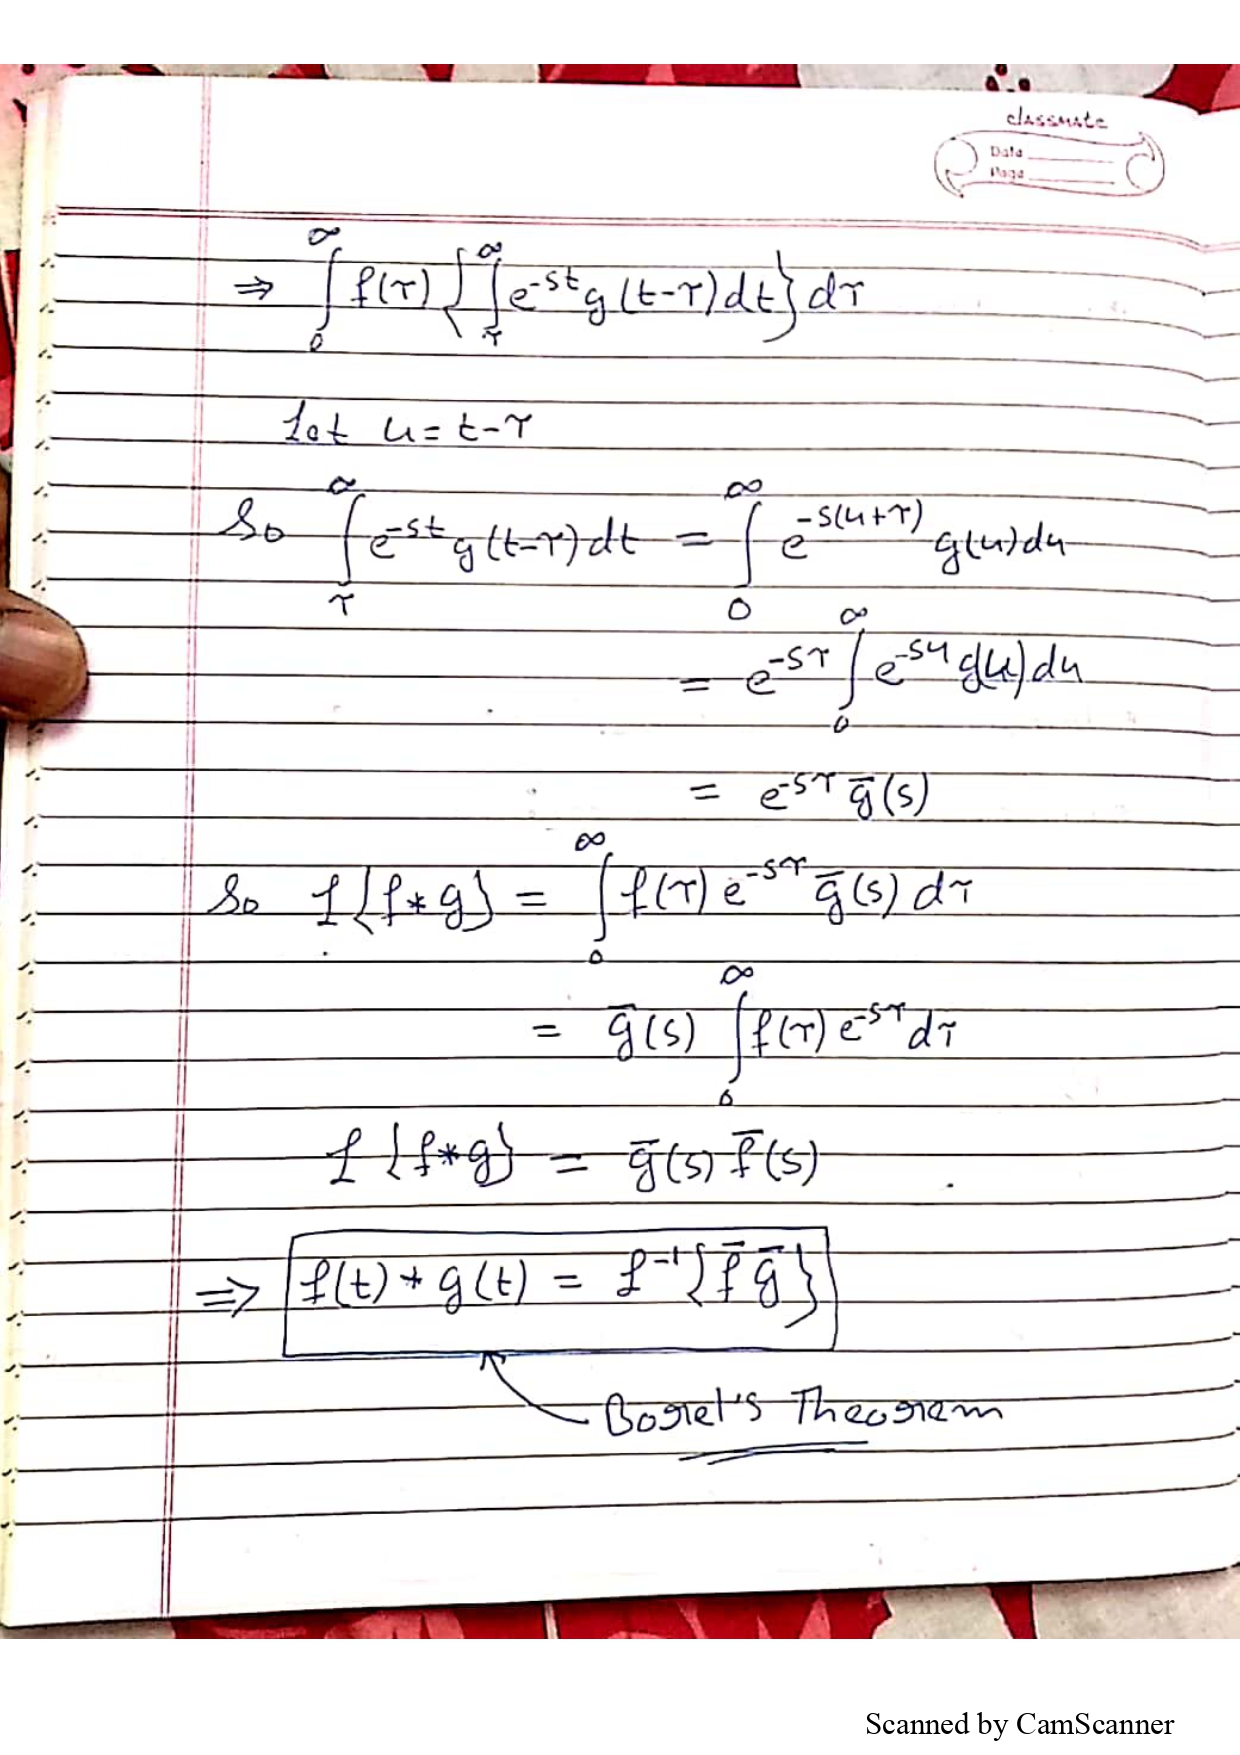 classmate
Date
Page
⇒ ∫₀^∞ f(τ) { ∫_τ^∞ e^{-st} g(t-τ) dt } dτ
Let u = t-τ
So ∫_τ^∞ e^{-st} g(t-τ) dt = ∫₀^∞ e^{-s(u+τ)} g(u) du
= e^{-sτ} ∫₀^∞ e^{-su} g(u) du
= e^{-sτ} ḡ(s)
So ℒ{f*g} = ∫₀^∞ f(τ) e^{-sτ} ḡ(s) dτ
= ḡ(s) ∫₀^∞ f(τ) e^{-sτ} dτ
ℒ{f*g} = ḡ(s) f̄(s)
⇒ f(t) * g(t) = ℒ⁻¹{f̄ ḡ}
Borel's Theorem
Scanned by CamScanner